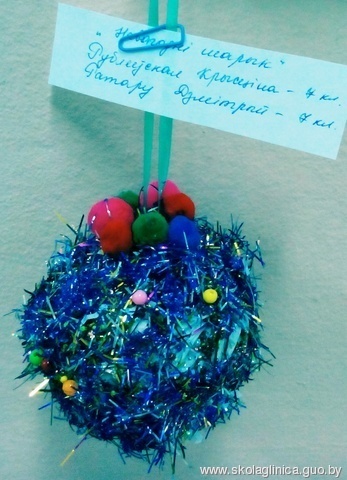 "Навагодні шарык"
Рублеўская Крысціна - 4 кл.
Гатару Дзмітрый - 7 кл.
www.skolaglinica.guo.by